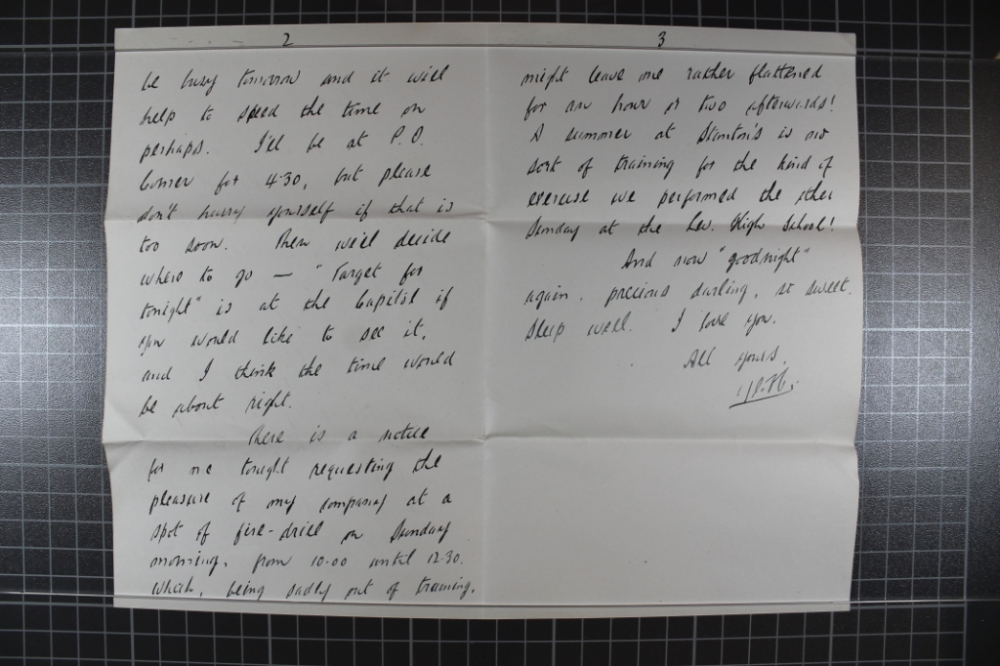 2
be busy tomorrow and it will
help to speed the time on
perhaps. I'll be at P.O.
Corner for 4.30, but please
don't hurry yourself if that is
too soon. Then we'll decide
where to go — "Target for
tonight" is at the Capitol if
you would like to see it,
and I think the time would
be about right.
There is a notice
for me tonight requesting the
pleasure of my company at a
spot of fire-drill on Sunday
morning, from 10.00 until 12.30.
Which, being sadly out of training,
3
might leave me rather flattened
for an hour or two afterwards!
A summer at Stanton's is no
sort of training for the kind of
exercise we performed the other
Sunday at the Lev. High School!
And now "goodnight"
again, precious darling, so sweet.
Sleep well. I love you.
All yours,